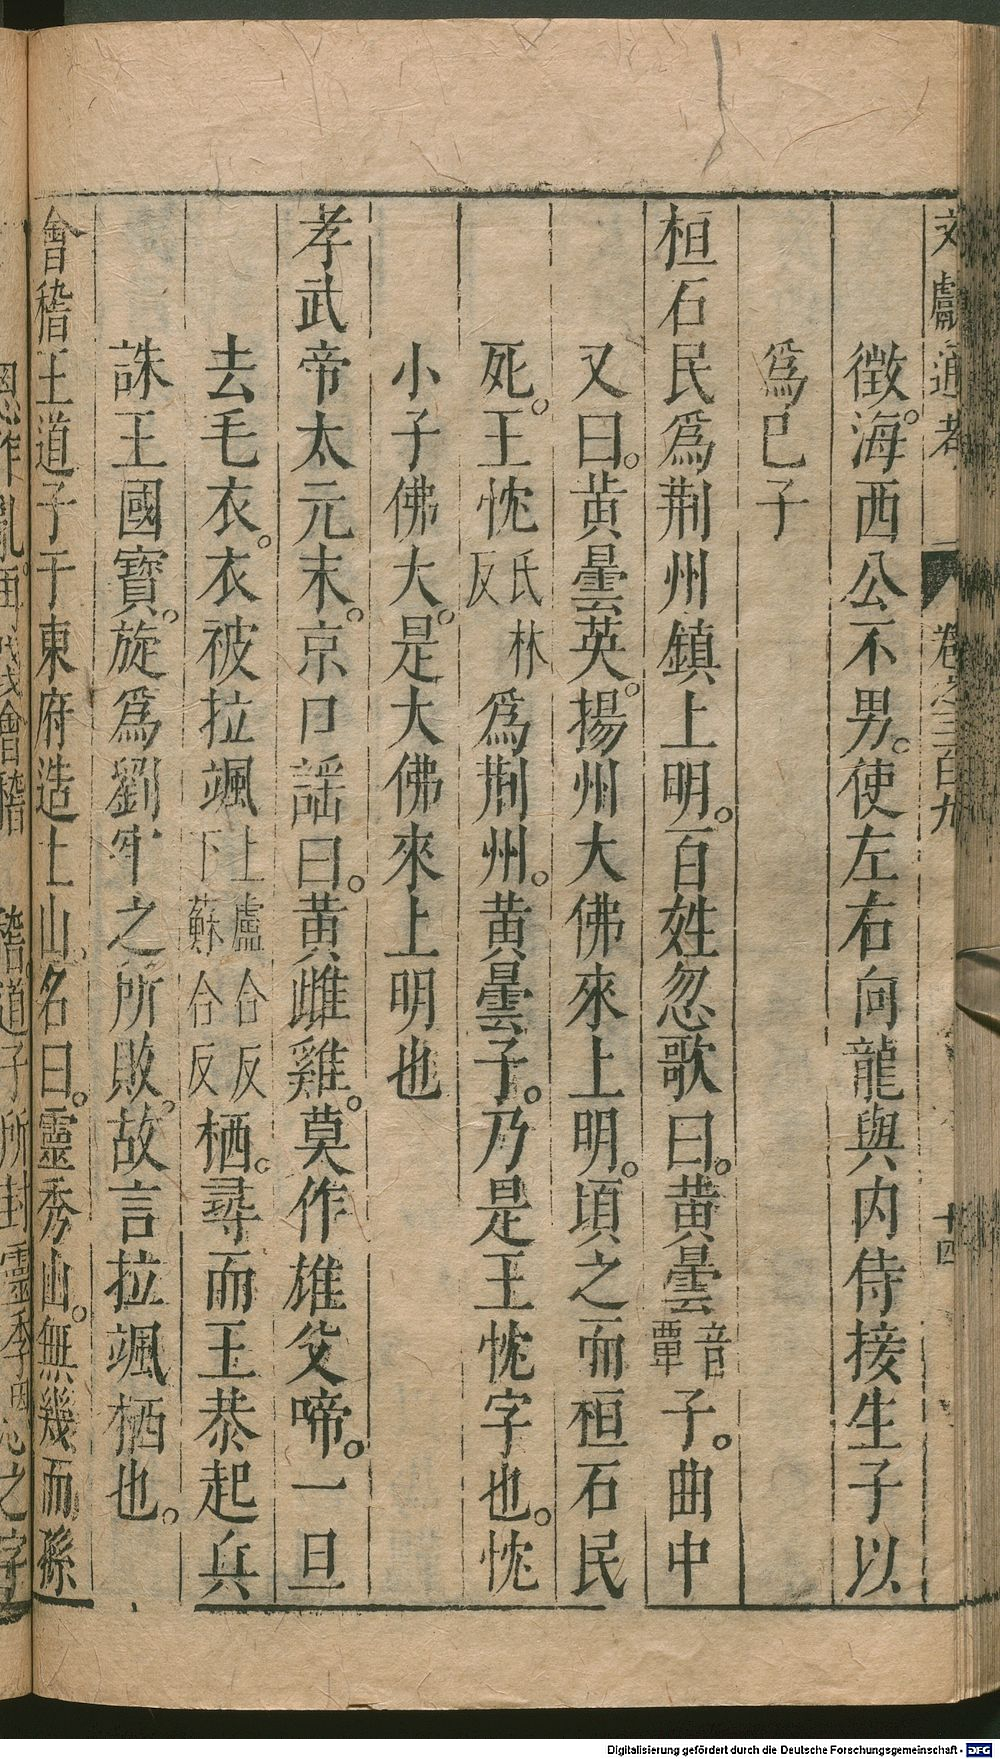 文獻通考 卷之三百九 十四
徵。海西公不男。使左右向龍與内侍接生子以
爲已子
桓石民爲荆州鎮上明。百姓忽歌曰。黄曇音覃子。曲中
又曰。黄曇英。揚州大佛來上明。頃之而桓石民
死。王忱氏林反爲荆州。黄曇子。乃是王忱字也。忱
小子佛大。是大佛來上明也
孝武帝太元末。京口謡曰。黄雌雞。莫作雄父啼。一旦
去毛衣。衣被拉颯上盧合反下蘇合反栖。尋而王恭起兵
誅王國寳。旋爲劉牢之所敗。故言拉颯栖也。
會稽王道子于東府造土山。名曰。靈秀山。無幾而孫
Digitalisierung gefördert durch die Deutsche Forschungsgemeinschaft - DFG